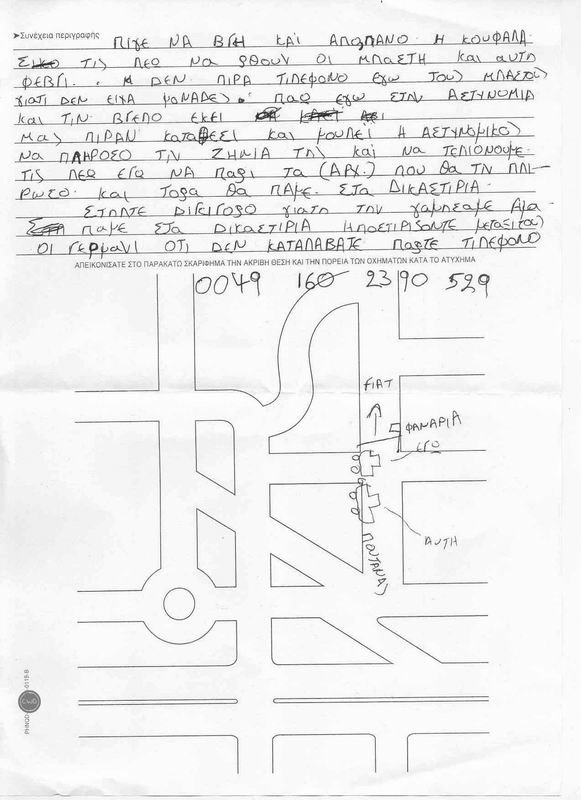 ➤Συνέχεια περιγραφής
ΠΙΓΕ ΝΑ ΒΓΗ ΚΑΙ ΑΠΟΠΑΝΟ Η ΚΟΥΦΑΛΑ.
ΤΙΣ ΛΕΟ ΝΑ ρθουν ΟΙ ΜΠΑΣΤΗ και αυτη
ΦΕΒΓΙ. ΔΕΝ ΠΙΡΑ ΤΙΛΕΦΟΝΟ εγω ΤΟΥΣ ΜΠΑΣΤΟΥΣ
γιατι ΔΕΝ ΕΙΧΑ ΜΟΝΑΔΕΣ. ΠΑΩ εγω ΣΤΗΝ ΑΣΤΥΝΟΜΙΑ
ΚΑΙ ΤΙΝ ΒΓΕΠΟ ΕΚΕΙ
ΜΑΣ ΠΙΡΑΝ ΚΑΤΑΘΕΣΙ και μουΛΕΙ Η ΑΣΤΥΝΟΜΙΚΟΣ
ΝΑ ΠΛΗΡΟΣΟ ΤΙΝ ΖΗΜΙΑ ΤΗΣ και να ΤΕΛΙΟΝΟΥΜΕ.
ΤΙΣ ΛΕΩ ΕΓΩ ΝΑ ΠΑΡΙ ΤΑ (ΑΡΧ.) ΠΟΥ ΘΑ ΤΝ ΠΛΙ-
ΡΩΣΟ. ΚΑΙ ΤΟΡΑ ΘΑ ΠΑΜΕ. ΣΤΑ ΔΙΚΑΣΤΙΡΙΑ.
ΣΤΙΛΤΕ ΔΙΚΙΓΟΡΟ γιατη ΤΗΝ γαμησαμε ΑΜΑ
ΠΑΜΕ ΣΤΑ ΔΙΚΑΣΤΙΡΙΑ ΗΠΟΣΤΙΡΙΣΟΝΤΕ ΜΕΤΑΞΙΤΟΥΣ
ΟΙ ΓΕΡΜΑΝΙ ΟΤΙ ΔΕΝ ΚΑΤΑΛΑΒΑΤΕ ΠΑΡΤΕ ΤΙΛΕΦΟΝΟ
ΑΠΕΙΚΟΝΙΣΑΤΕ ΣΤΟ ΠΑΡΑΚΑΤΩ ΣΚΑΡΙΦΗΜΑ ΤΗΝ ΑΚΡΙΒΗ ΘΕΣΗ ΚΑΙ ΤΗΝ ΠΟΡΕΙΑ ΤΩΝ ΟΧΗΜΑΤΩΝ ΚΑΤΑ ΤΟ ΑΤΥΧΗΜΑ
0049 160 23 90 529
FIAT
ΦΑΝΑΡΙΑ
ΕΓΩ
ΑΥΤΗ
ΠΟΥΤΑΝΑΣ
CWD